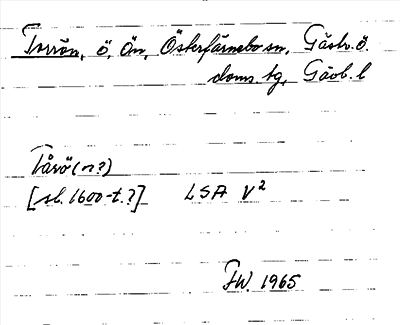 Torrön, ö, Ön, Österfärnebo sn, Gästr. ö.
doms. tg, Gävl. l
Tårö (n?)
[sl. 1600-t.?] LSA V²
FW. 1965